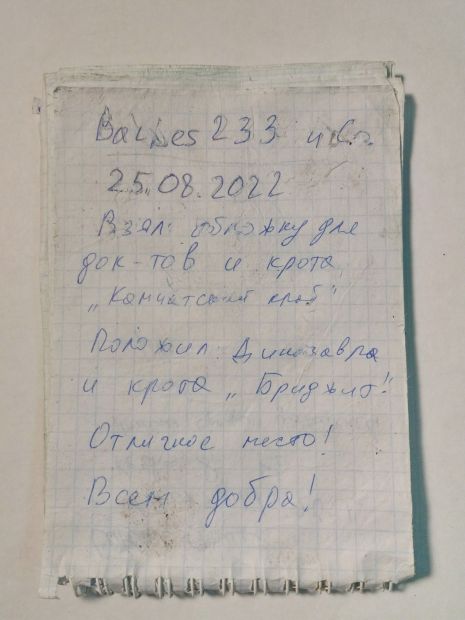 Barnes 233 и Со.
25.08.2022
Взял: обложку для
док-тов и крота
„Камчатский краб"
Положил: Динозавра
и крота „Бриджит!"
Отличное место!
Всем добра!